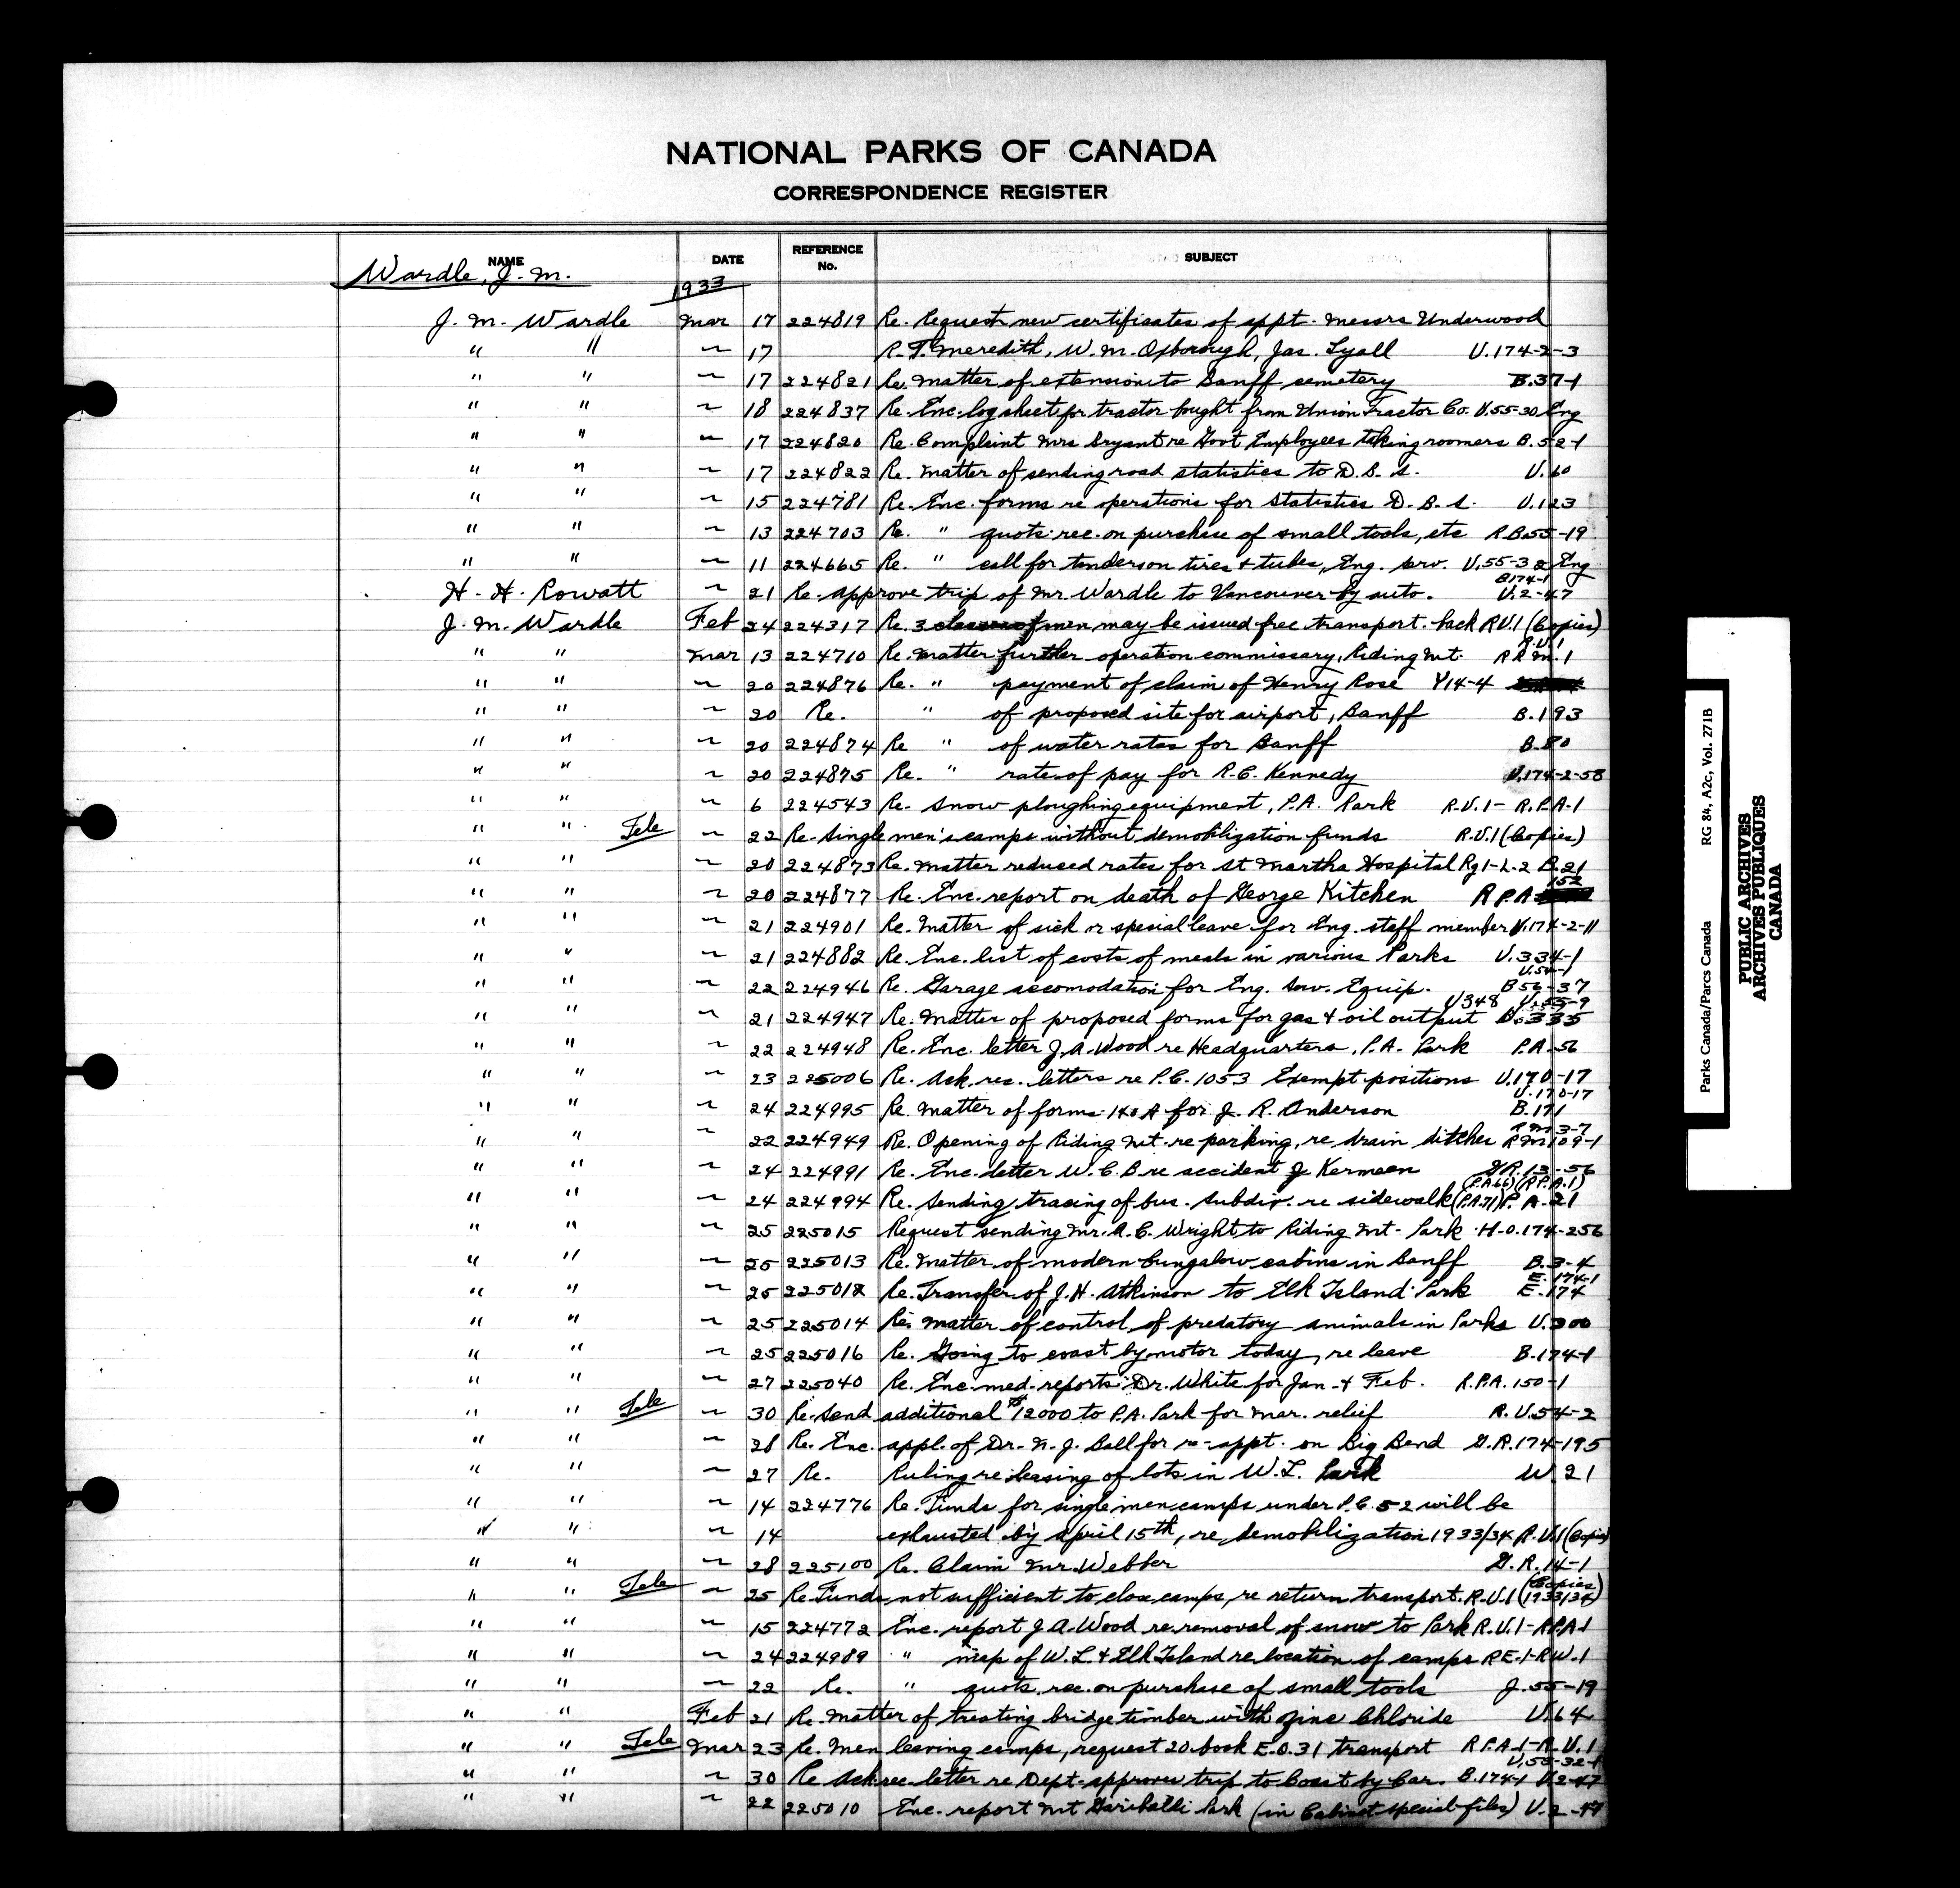 NATIONAL PARKS OF CANADA
CORRESPONDENCE REGISTER
NAME DATE REFERENCE No. SUBJECT
Wardle, J. M.
1933
J. M. Wardle Mar 17 224819 Re. Request new certificates of appt. Messrs Underwood
" " ~ 17 R. T. Meredith, W. M. Oxborough, Jas. Lyall U.174-2-3
" " ~ 17 224821 Re. Matter of extension to Banff cemetery B.37-1
" " ~ 18 224837 Re. Enc. log sheet for tractor bought from Union Tractor Co. U.55-30 Eng
" " ~ 17 224820 Re. Complaint Mrs Bryant re Govt Employees taking roomers B.52-1
" " ~ 17 224822 Re. Matter of sending road statistics to D.B.S. U.60
" " ~ 15 224781 Re. Enc. forms re operations for Statistics D.B.S. U.123
" " ~ 13 224703 Re. " quots. rec. on purchase of small tools, etc R.B.55-19
" " ~ 11 224665 Re. " call for tenders on tires + tubes, Eng. Serv. U.55-32 Eng
H. H. Rowatt ~ 21 Re. approve trip of Mr. Wardle to Vancouver by auto. B174-1 U.2-47
J. M. Wardle Feb 24 224317 Re. 3 classes of men may be issued free transport. back R.U.1 (Copies)
" " Mar 13 224710 Re. Matter further operation commissary, Riding Mt. R.U.1 R R M.1
" " ~ 20 224876 Re. " payment of claim of Henry Rose Y14-4
" " ~ 20 Re. " of proposed site for airport, Banff B.193
" " ~ 20 224874 Re " of water rates for Banff B.80
" " ~ 20 224875 Re. " rate of pay for R.C. Kennedy U.174-2-58
" " ~ 6 224543 Re. Snow ploughing equipment, P.A. Park R.U.1- R.P.A-1
" " Tele ~ 22 Re. Single men's camps without demobilization funds R.U.1 (Copies)
" " ~ 20 224873 Re. Matter reduced rates for St Martha Hospital Rg1-L.2 B.21
" " ~ 20 224877 Re. Enc. report on death of George Kitchen R P A 152
" " ~ 21 224901 Re. Matter of sick or special leave for Eng. staff member U.174-2-11
" " ~ 21 224882 Re. Enc. list of costs of meals in various Parks U.334-1
" " ~ 22 224946 Re. Garage accomodation for Eng. Serv. Equip. U.54-1 B56-37
" " ~ 21 224947 Re. Matter of proposed forms for gas & oil output U348 U.55-9 U.335
" " ~ 22 224948 Re. Enc. letter J.A. Wood re Headquarters, P.A. Park P.A-56
" " ~ 23 225006 Re. Ack rec. letters re P.C. 1053 Exempt positions U.170-17
" " ~ 24 224995 Re. Matter of forms 140 A for J. R. Anderson U.170-17 B.171
" " ~ 22 224949 Re. Opening of Riding Mt. re parking, re drain ditches R M 3-7 R M 109-1
" " ~ 24 224991 Re. Enc. letter W.C.B re accident J Kermeen G R.13-56
" " ~ 24 224994 Re. Sending tracing of bus. subdiv. re sidewalk (P.A.71) (P.A.66) (R P.A.1) P.A-21
" " ~ 25 225015 Request sending Mr. A. C. Wright to Riding Mt. Park H-O.174-256
" " ~ 25 225013 Re. Matter of modern bungalow cabins in Banff B.3-4
" " ~ 25 225012 Re. Transfer of J.H. Atkinson to Elk Island Park E.174-1 E.174
" " ~ 25 225014 Re. Matter of control of predatory animals in Parks U.300
" " ~ 25 225016 Re. Going to coast by motor today, re leave B.174-1
" " ~ 27 225040 Re. Enc. med. reports Dr. White for Jan. + Feb. R.P.A. 150-1
" " Tele ~ 30 Re. Send additional $12000 to P.A. Park for Mar. relief R.U.54-2
" " ~ 28 Re. Enc. appl. of Dr. N. J. Ball for re-appt. on Big Bend G.R.174-195
" " ~ 27 Re. Ruling re leasing of lots in W.L. Park W 21
" " ~ 14 224776 Re. Funds for single men camps under P.C. 52 will be
" " ~ 14 exhausted by April 15th, re demobilization 1933/34 R.U.1 (Copies)
" " ~ 28 225100 Re. Claim Mr. Webber G.R.14-1
" " Tele ~ 25 Re. Funds not sufficient to close camps, re return transport. R.U.1 (Copies) (1933/34)
" " ~ 15 224772 Enc. report J.A. Wood re removal of snow to Park R.U.1-R.P.A-1
" " ~ 24 224989 " map of W.L. & Elk Island re location of camps R E.1-R W.1
" " ~ 22 Re. " quots. rec. on purchase of small tools J.55-19
" " Feb 21 Re. Matter of treating bridge timber with Zinc Chloride U.64
" " Tele Mar 23 Re. Men leaving camps, request 20 book E.O.31 transport R P.A-1-R.U.1
" " ~ 30 Re Ack rec. letter re Dept. approves trip to Coast by Car. U.55-32-1 B.174-1 U.2-47
" " ~ 22 225010 Enc. report Mt Garibaldi Park (in Cabinet special files) U.2-47
Parks Canada/Parcs Canada RG 84, A2c, Vol. 271B
PUBLIC ARCHIVES
ARCHIVES PUBLIQUES
CANADA